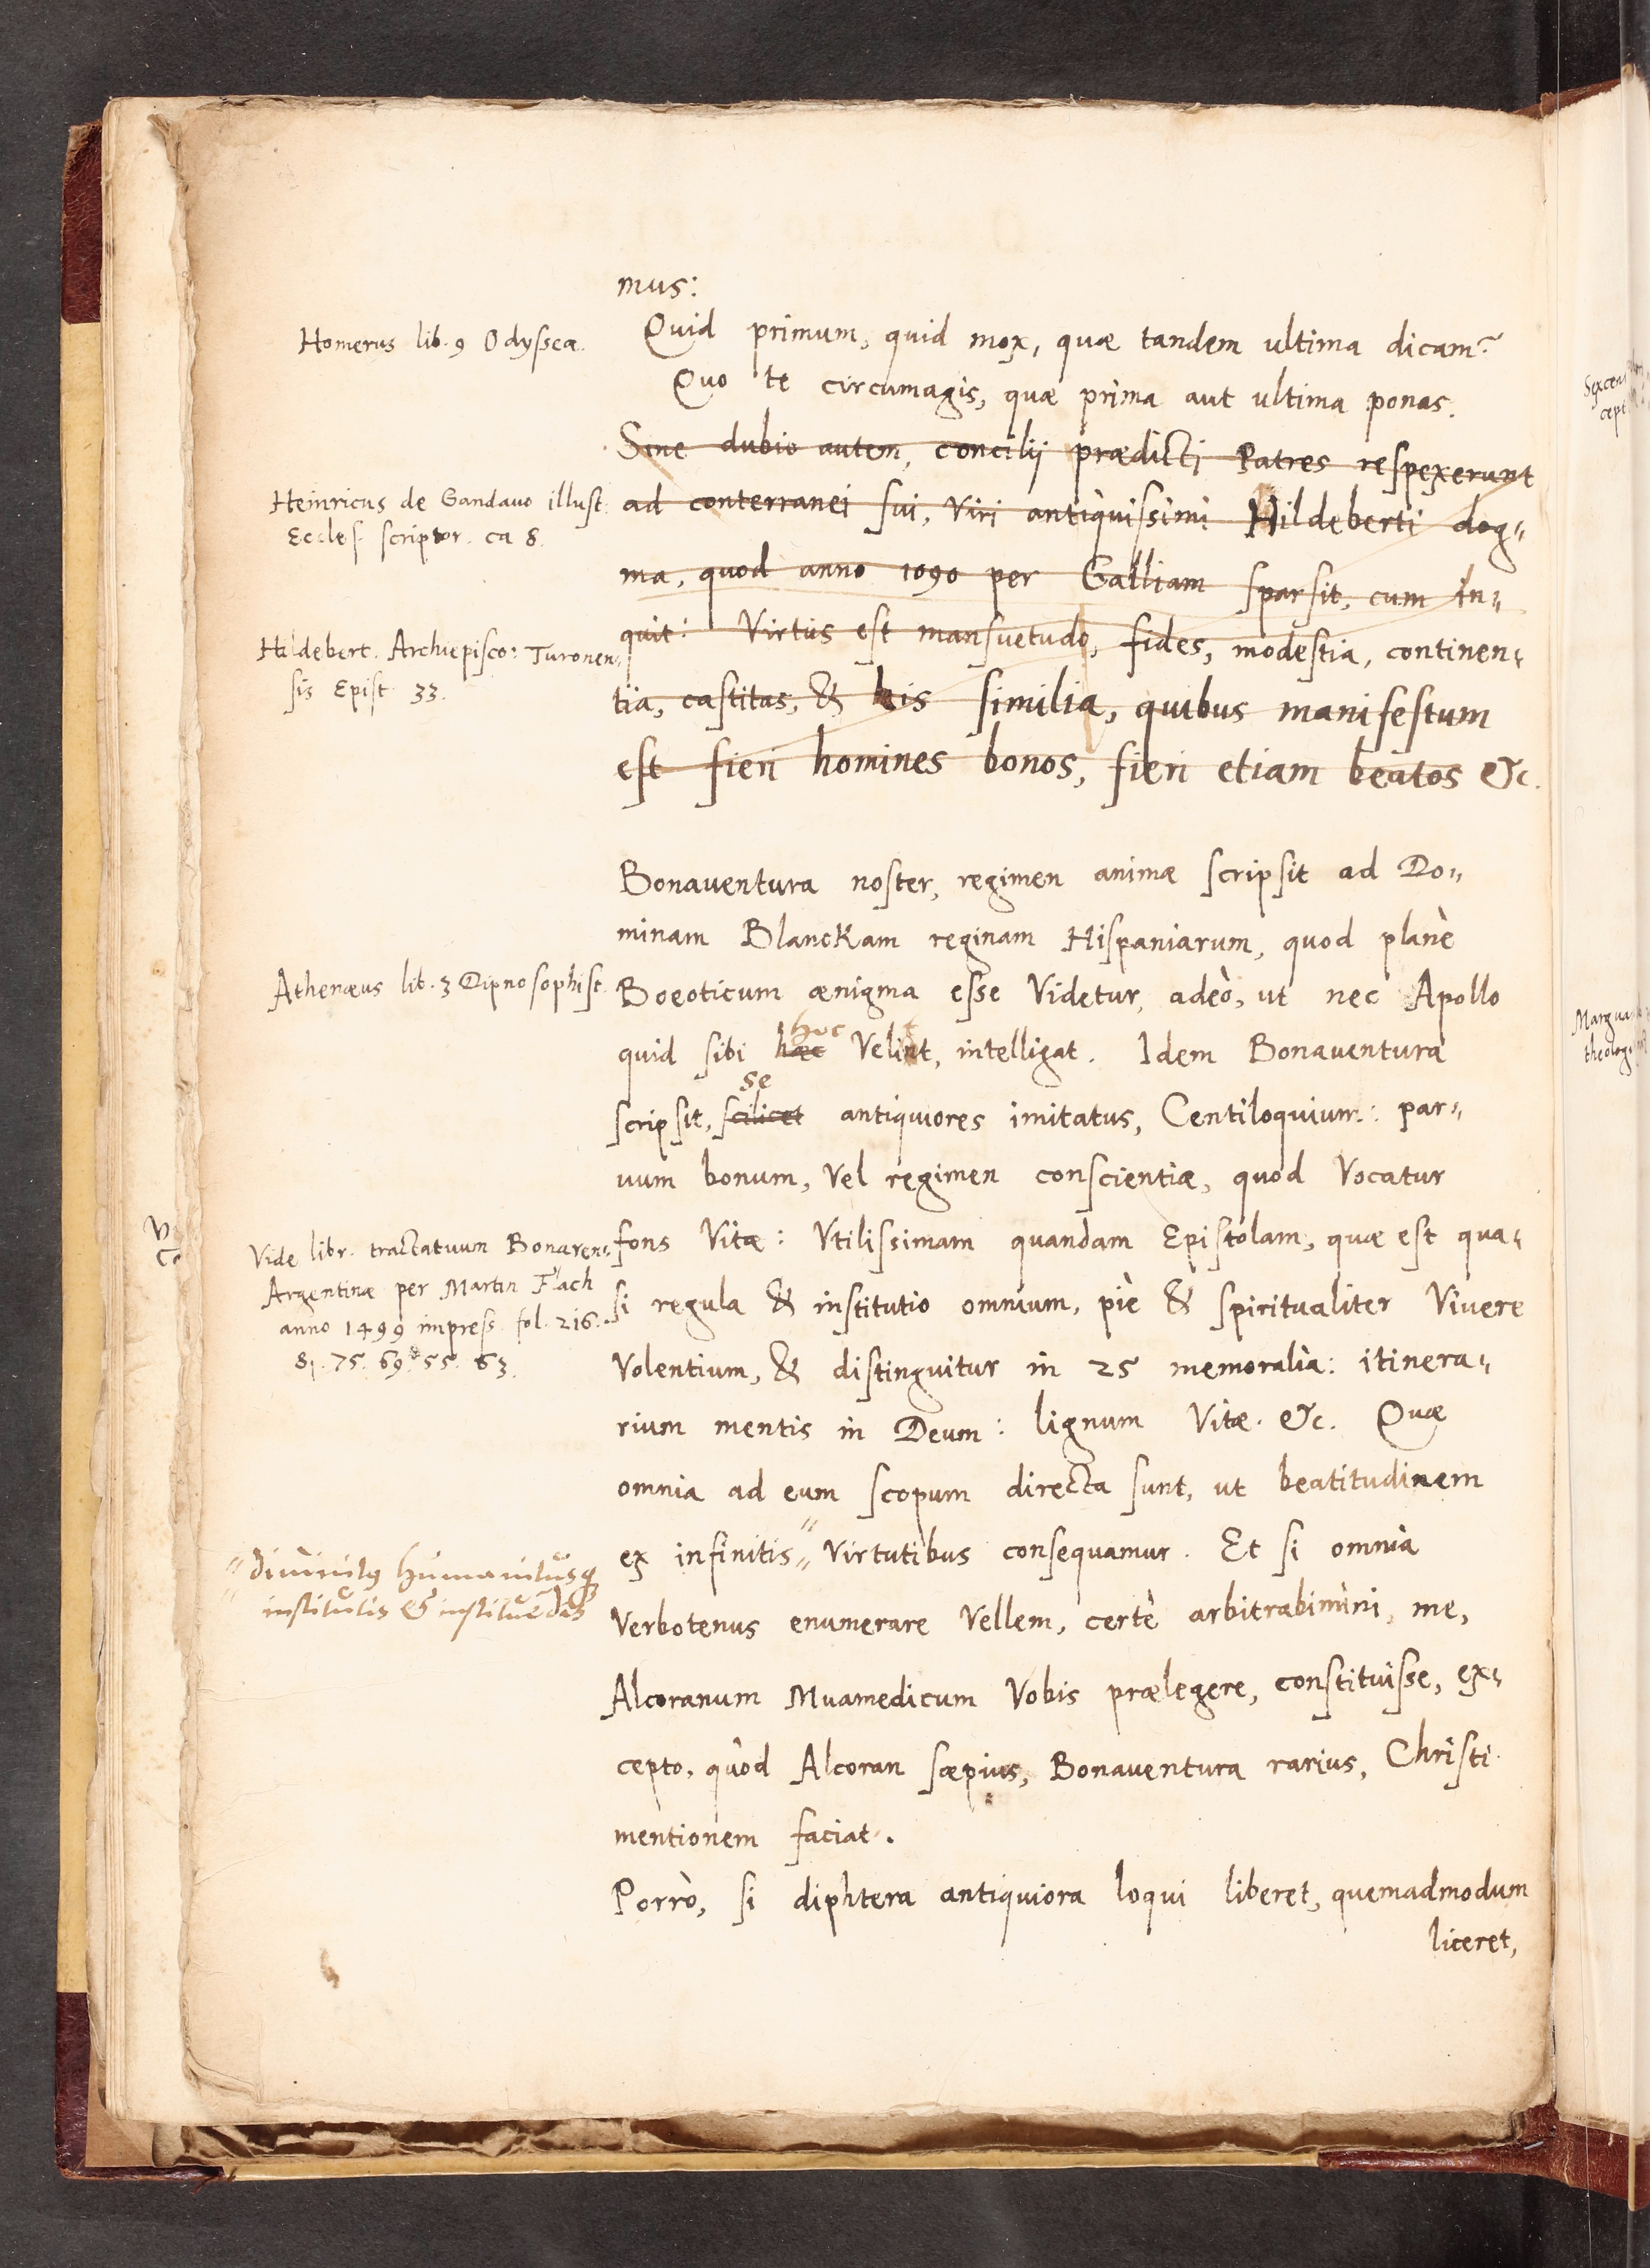 mus:
Homerus lib. 9 Odyssea.
Quid primum, quid mox, quæ tandem ultima dicam?
Quo te circumagis, quæ prima aut ultima ponas.
Sine dubio autem, concilij prædicti Patres respexerunt
Heinricus de Gandauo illust.
Eccles. scriptor. ca 8.
ad conterranei sui, Viri antiquissimi Hildeberti dog„
ma, quod anno 1090 per Galliam sparsit, cum in„
Hildebert. Archiepisco: Turonen„
sis Epist. 33.
quit: Virtus est mansuetudo, fides, modestia, continen„
tia, castitas, & his similia, quibus manifestum
est fieri homines bonos, fieri etiam beatos &c.
Bonauentura noster, regimen animæ scripsit ad Do„
minam Blanckam reginam Hispaniarum, quod planè
Athenæus lib. 3 Dipnosophist.
Boeoticum ænigma esse Videtur, adeò, ut nec Apollo
hoc
quid sibi hæc Velint, intelligat. Idem Bonauentura
se
scripsit, scilicet antiquiores imitatus, Centiloquium: par„
uum bonum, Vel regimen conscientiæ, quod Vocatur
Vide libr. tractatuum Bonauen„
Argentinæ per Martin Flach
anno 1499 impress. fol. 216.
81. 75. 69. 55. 63.
fons Vitæ: Vtilissimam quandam Epistolam, quæ est qua„
si regula & institutio omnium, piè & spiritualiter Viuere
Volentium, & distinguitur in 25 memoralia: itinera„
rium mentis in Deum: lignum Vitæ. &c. Quæ
omnia ad eum scopum directa sunt, ut beatitudinem
„diuinitus humanitusq
institutis & instituēdis
ex infinitis„ Virtutibus consequamur. Et si omnia
Verbotenus enumerare Vellem, certè arbitrabimini, me,
Alcoranum Muamedicum Vobis prælegere, constituisse, ex„
cepto, quòd Alcoran sæpius, Bonauentura rarius, Christi
mentionem faciat.
Porrò, si diphtera antiquiora loqui liberet, quemadmodum
liceret,